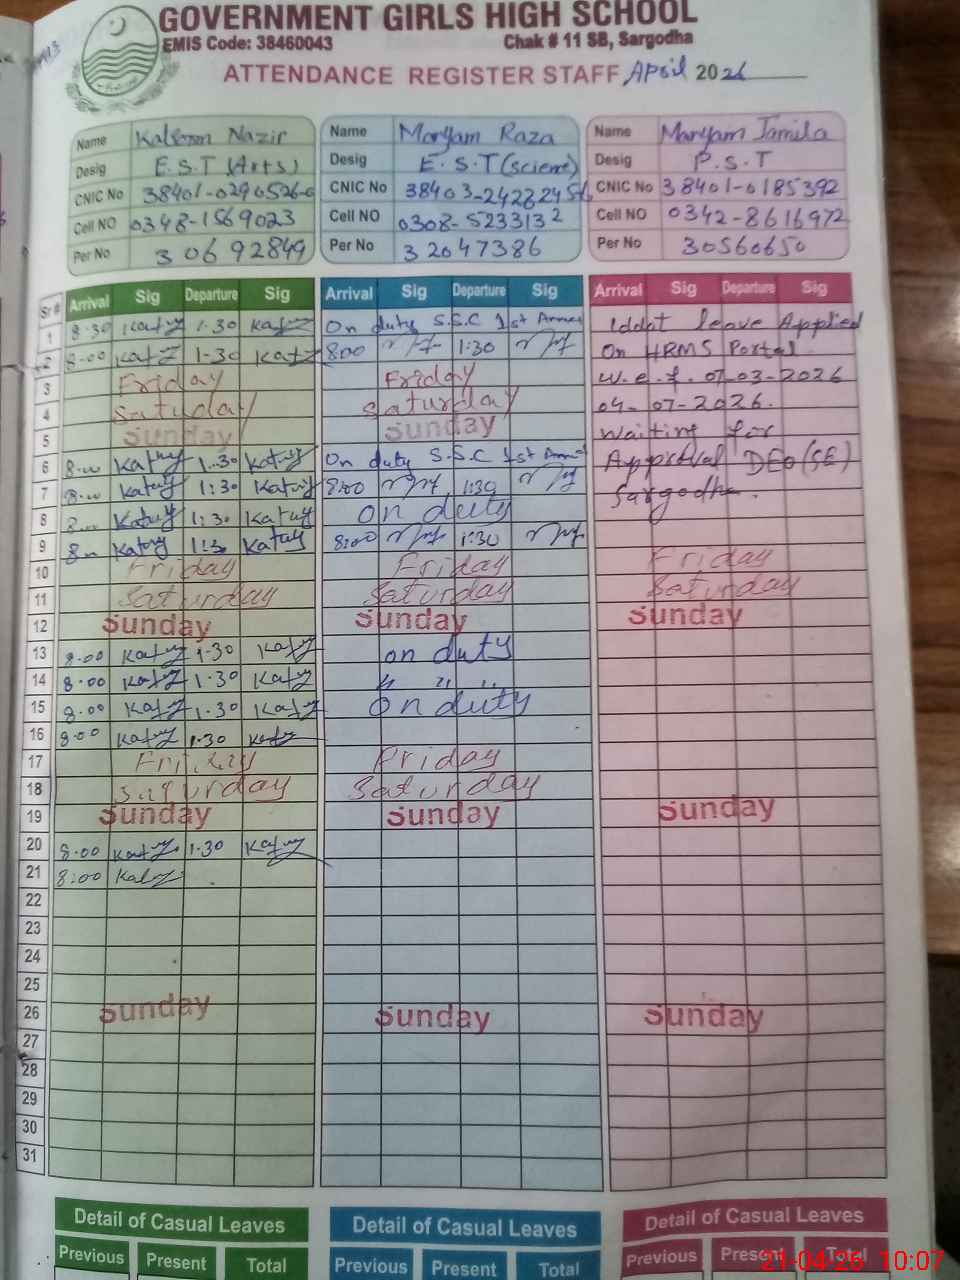 GOVERNMENT GIRLS HIGH SCHOOL
EMIS Code: 38460043 Chak # 11 SB, Sargodha
ATTENDANCE REGISTER STAFF April 2026
Name Kalsoom Nazir Name Maryam Raza Name Maryam Jamila
Desig E.S.T (Arts) Desig E.S.T (science) Desig P.S.T
CNIC No 38401-0290526-0 CNIC No 38403-24282456 CNIC No 38401-0185392
Cell NO 0348-1569023 Cell NO 0308-5233132 Cell NO 0342-8616972
Per No 30692849 Per No 32047386 Per No 30560650
Sr # Arrival Sig Departure Sig Arrival Sig Departure Sig Arrival Sig Departure Sig
1 8:30 1.30 On duty S.S.C 1st Annual Iddat leave Applied
2 8-00 1-30 8:00 1:30 On HRMS Portal
3 Friday Friday w.e.f. 07-03-2026
4 Saturday Saturday 04-07-2026.
5 Sunday Sunday Waiting for
6 1:30 On duty S.S.C 1st Annual Approval DEO (SE)
7 1:30 8:00 1:30 Sargodha.
8 1:30 On duty
9 1:30 8:00 1:30
10 Friday Friday Friday
11 Saturday Saturday Saturday
12 Sunday Sunday Sunday
13 8.00 1.30 on duty
14 8.00 1.30 " " "
15 8.00 1.30 On duty
16 8:00 1.30
17 Friday Friday
18 Saturday Saturday
19 Sunday Sunday Sunday
20 8.00 1.30
21 8:00
22
23
24
25
26 Sunday Sunday Sunday
27
28
29
30
31
Detail of Casual Leaves Detail of Casual Leaves Detail of Casual Leaves
Previous Present Total Previous Present Total Previous Present Total
21-04-26 10:07